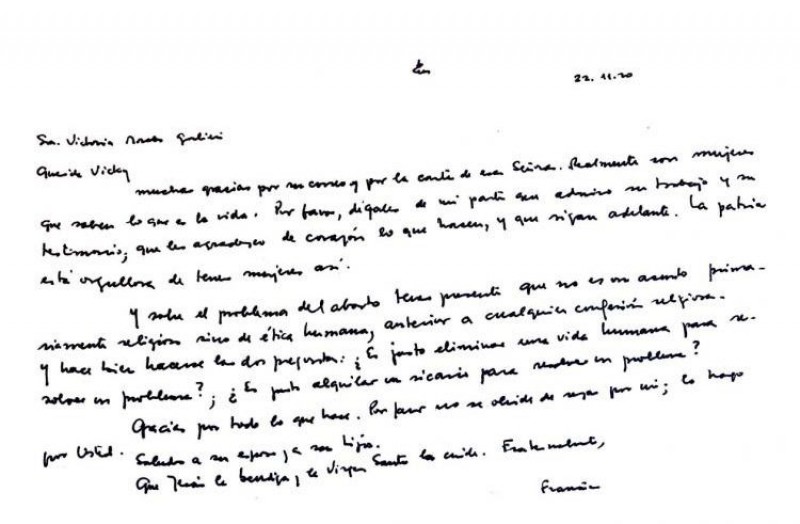 22.11.20
Sra. Victoria Morales Gorleri
Querida Vicky
muchas gracias por su correo y por la carta de esa Señora. Realmente son mujeres
que saben lo que es la vida. Por favor, dígales de mi parte que admiro su trabajo y su
testimonio; que les agradezco de corazón lo que hacen, y que sigan adelante. La patria
está orgullosa de tener mujeres así.
Y sobre el problema del aborto tener presente que no es un asunto prima-
riamente religioso sino de ética humana, anterior a cualquier confesión religiosa.
Y hace bien hacerse las dos preguntas: ¿Es justo eliminar una vida humana para re-
solver un problema?; ¿Es justo alquilar un sicario para resolver un problema?
Gracias por todo lo que hace. Por favor no se olvide de rezar por mí; lo hago
por Usted.
Saludos a su esposo y a sus hijos.
Que Jesús la bendiga y la Virgen Santa la cuide. Fraternalmente,
Francisco